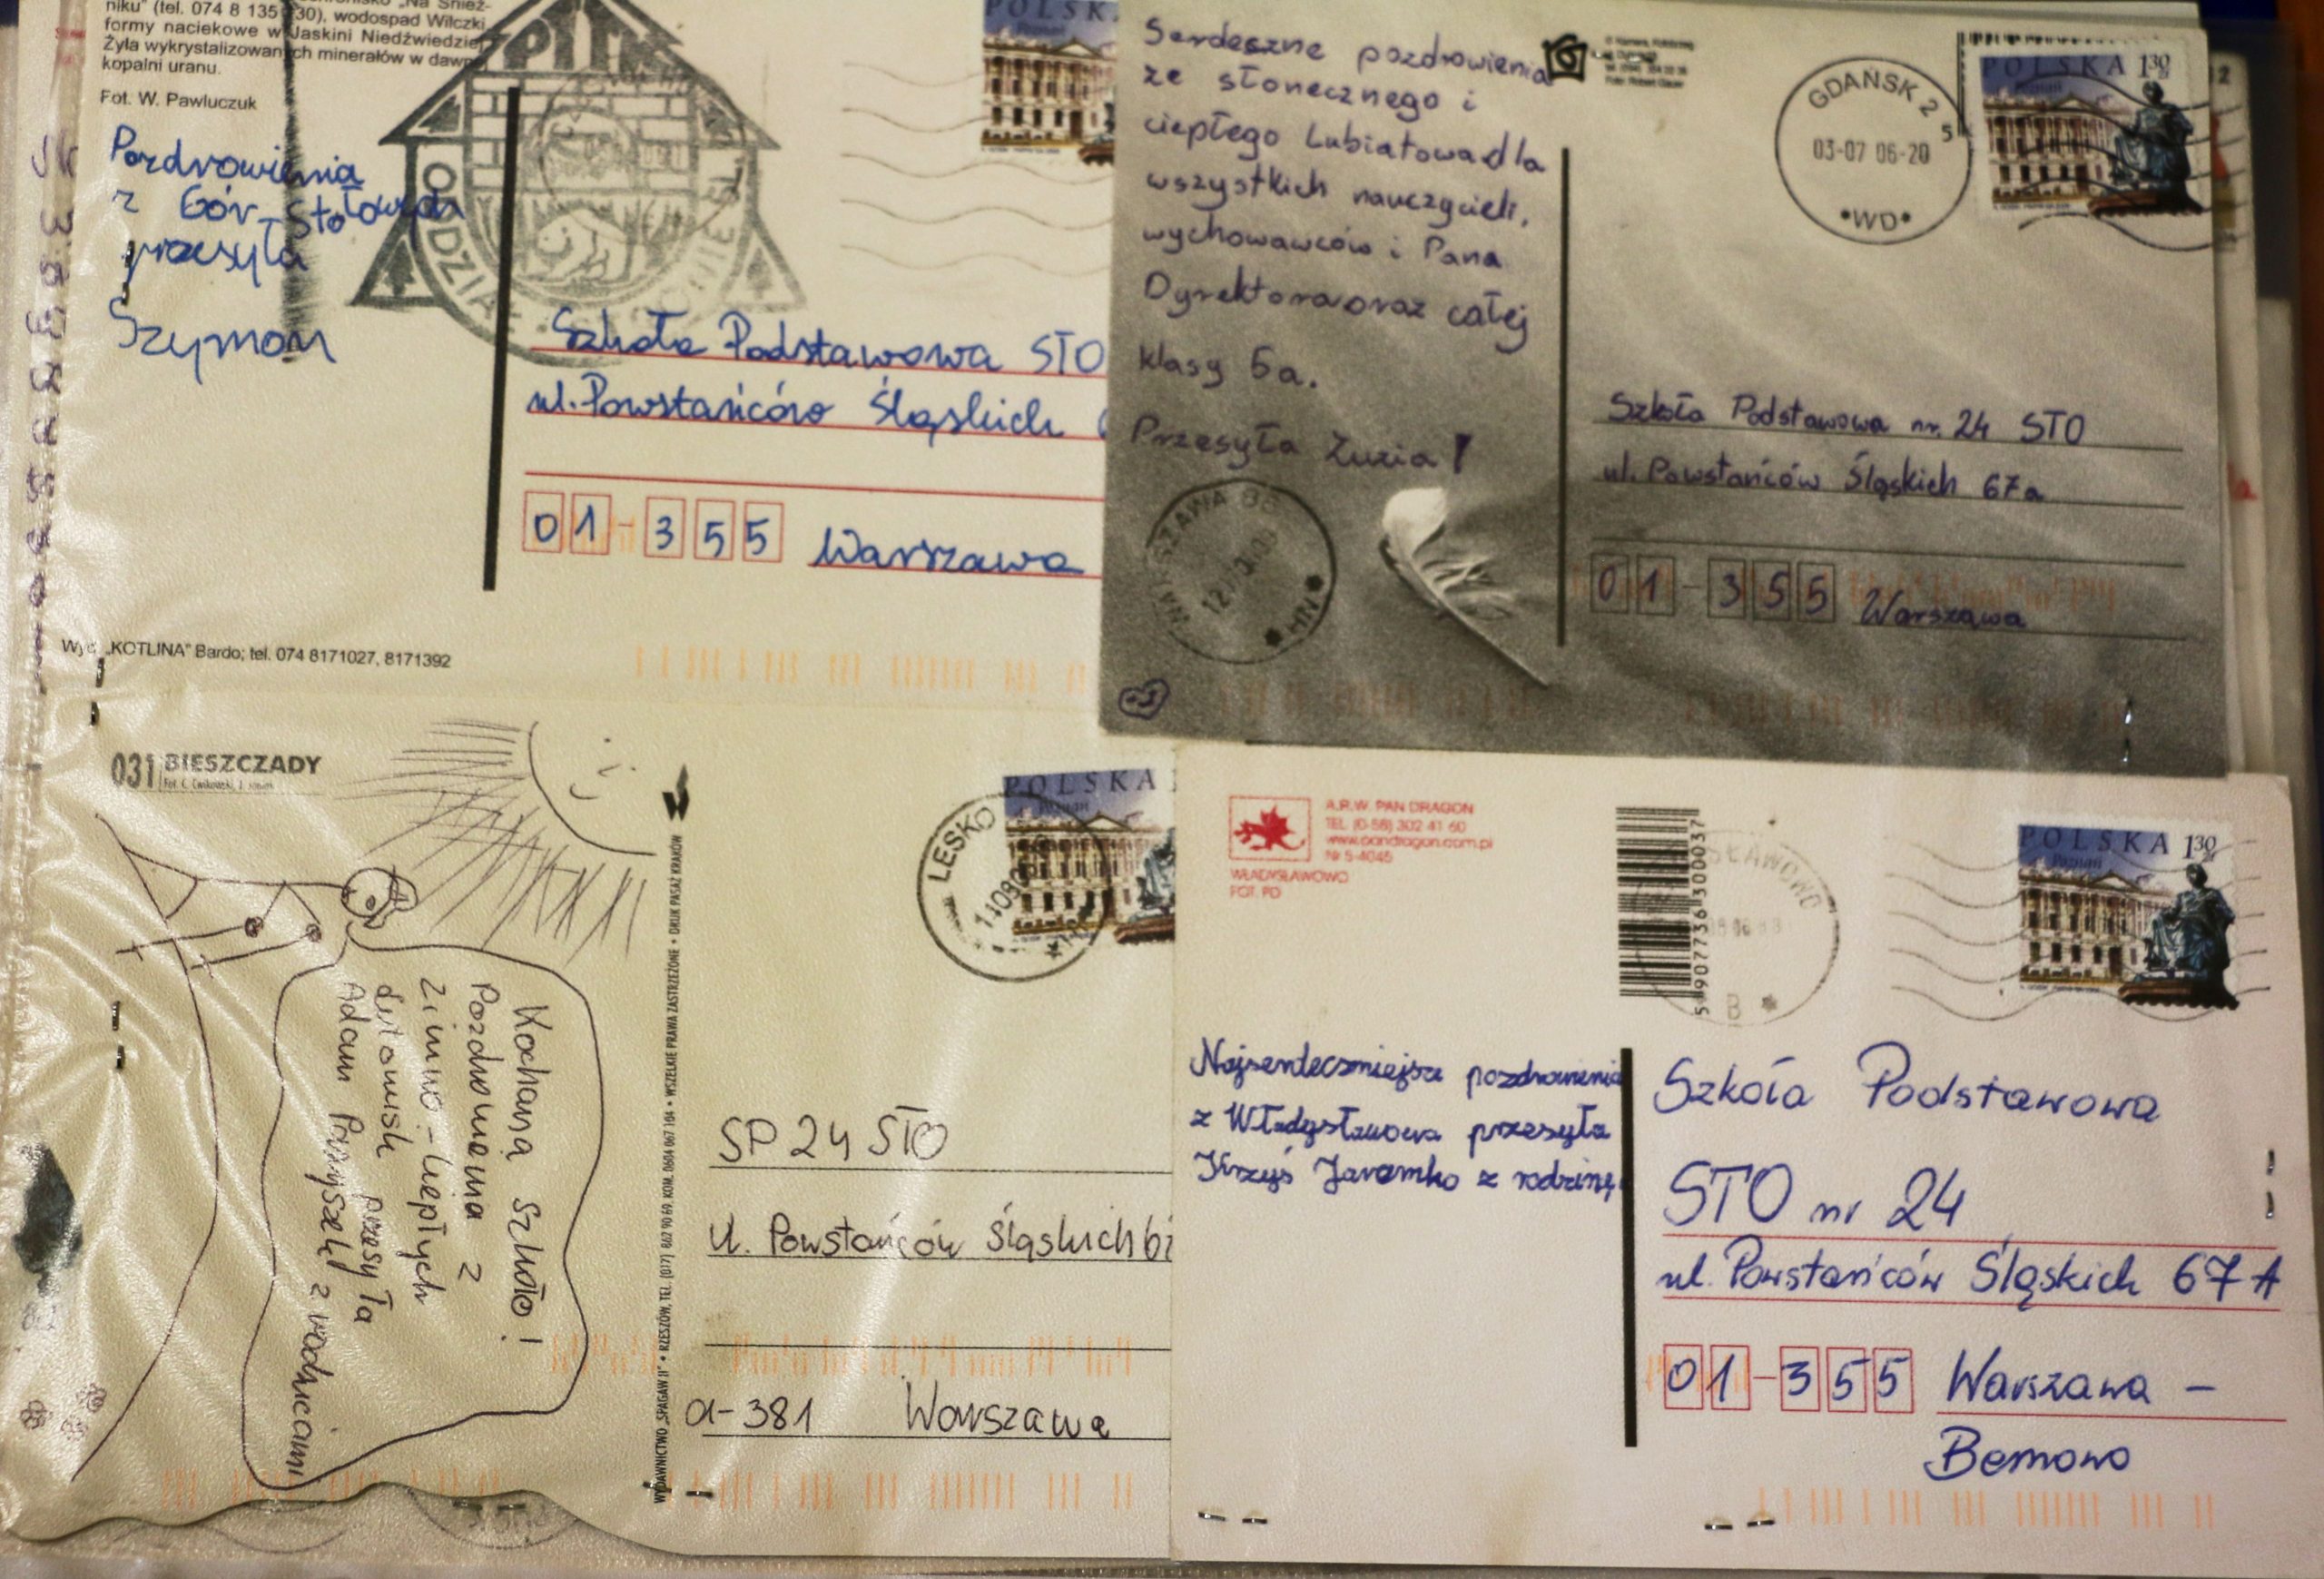 niku" (tel. 074 8 135 30), wodospad Wilczki
formy naciekowe w Jaskini Niedźwiedziej
Żyła wykrystalizowanych minerałów w dawnej
kopalni uranu.
Fot. W. Pawluczuk
Pozdrowienia
z Gór Stołowych
przesyła
Szymon
PTTK
ODDZIAŁ
POLSKA
Szkoła Podstawowa STO
ul. Powstańców Śląskich
01-355 Warszawa
Wyd. „KOTLINA" Bardo; tel. 074 8171027, 8171392
Serdeczne pozdrowienia
ze słonecznego i
ciepłego Lubiatowa dla
wszystkich nauczycieli,
wychowawców i Pana
Dyrektora oraz całej
klasy 5a.
Przesyła Zuzia!
GDAŃSK 2
5
03-07 06-20
*WD*
POLSKA 130 zł
Poznań
WARSZAWA
HN
Szkoła Podstawowa nr. 24 STO
ul. Powstańców Śląskich 67a
01-355 Warszawa
031 BIESZCZADY
Kochana Szkoło!
Pozdrowienia z
Zimno-ciepłych
Lutowisk przesyła
Adam z rodzicami
WYDAWNICTWO „SPAGAW II" • RZESZÓW, TEL. (017) 862 90 69, KOM. 0604 067 104 • WSZELKIE PRAWA ZASTRZEŻONE • DRUK PASAŻ KRAKÓW
LESKO
POLSKA
Poznań
SP 24 STO
Ul. Powstańców Śląskich
01-381 Warszawa
A.R.W. PAN DRAGON
TEL. (0-58) 302 41 60
www.pandragon.com.pl
Nr S-4045
WŁADYSŁAWOWO
FOT. PD
5 907736 300037
SŁAWOWO
B *
POLSKA 130 zł
Poznań
Najserdeczniejsze pozdrowienia
z Władysławowa przesyła
Krzyś Jaromko z rodziną
Szkoła Podstawowa
STO nr 24
ul. Powstańców Śląskich 67A
01-355 Warszawa -
Bemowo